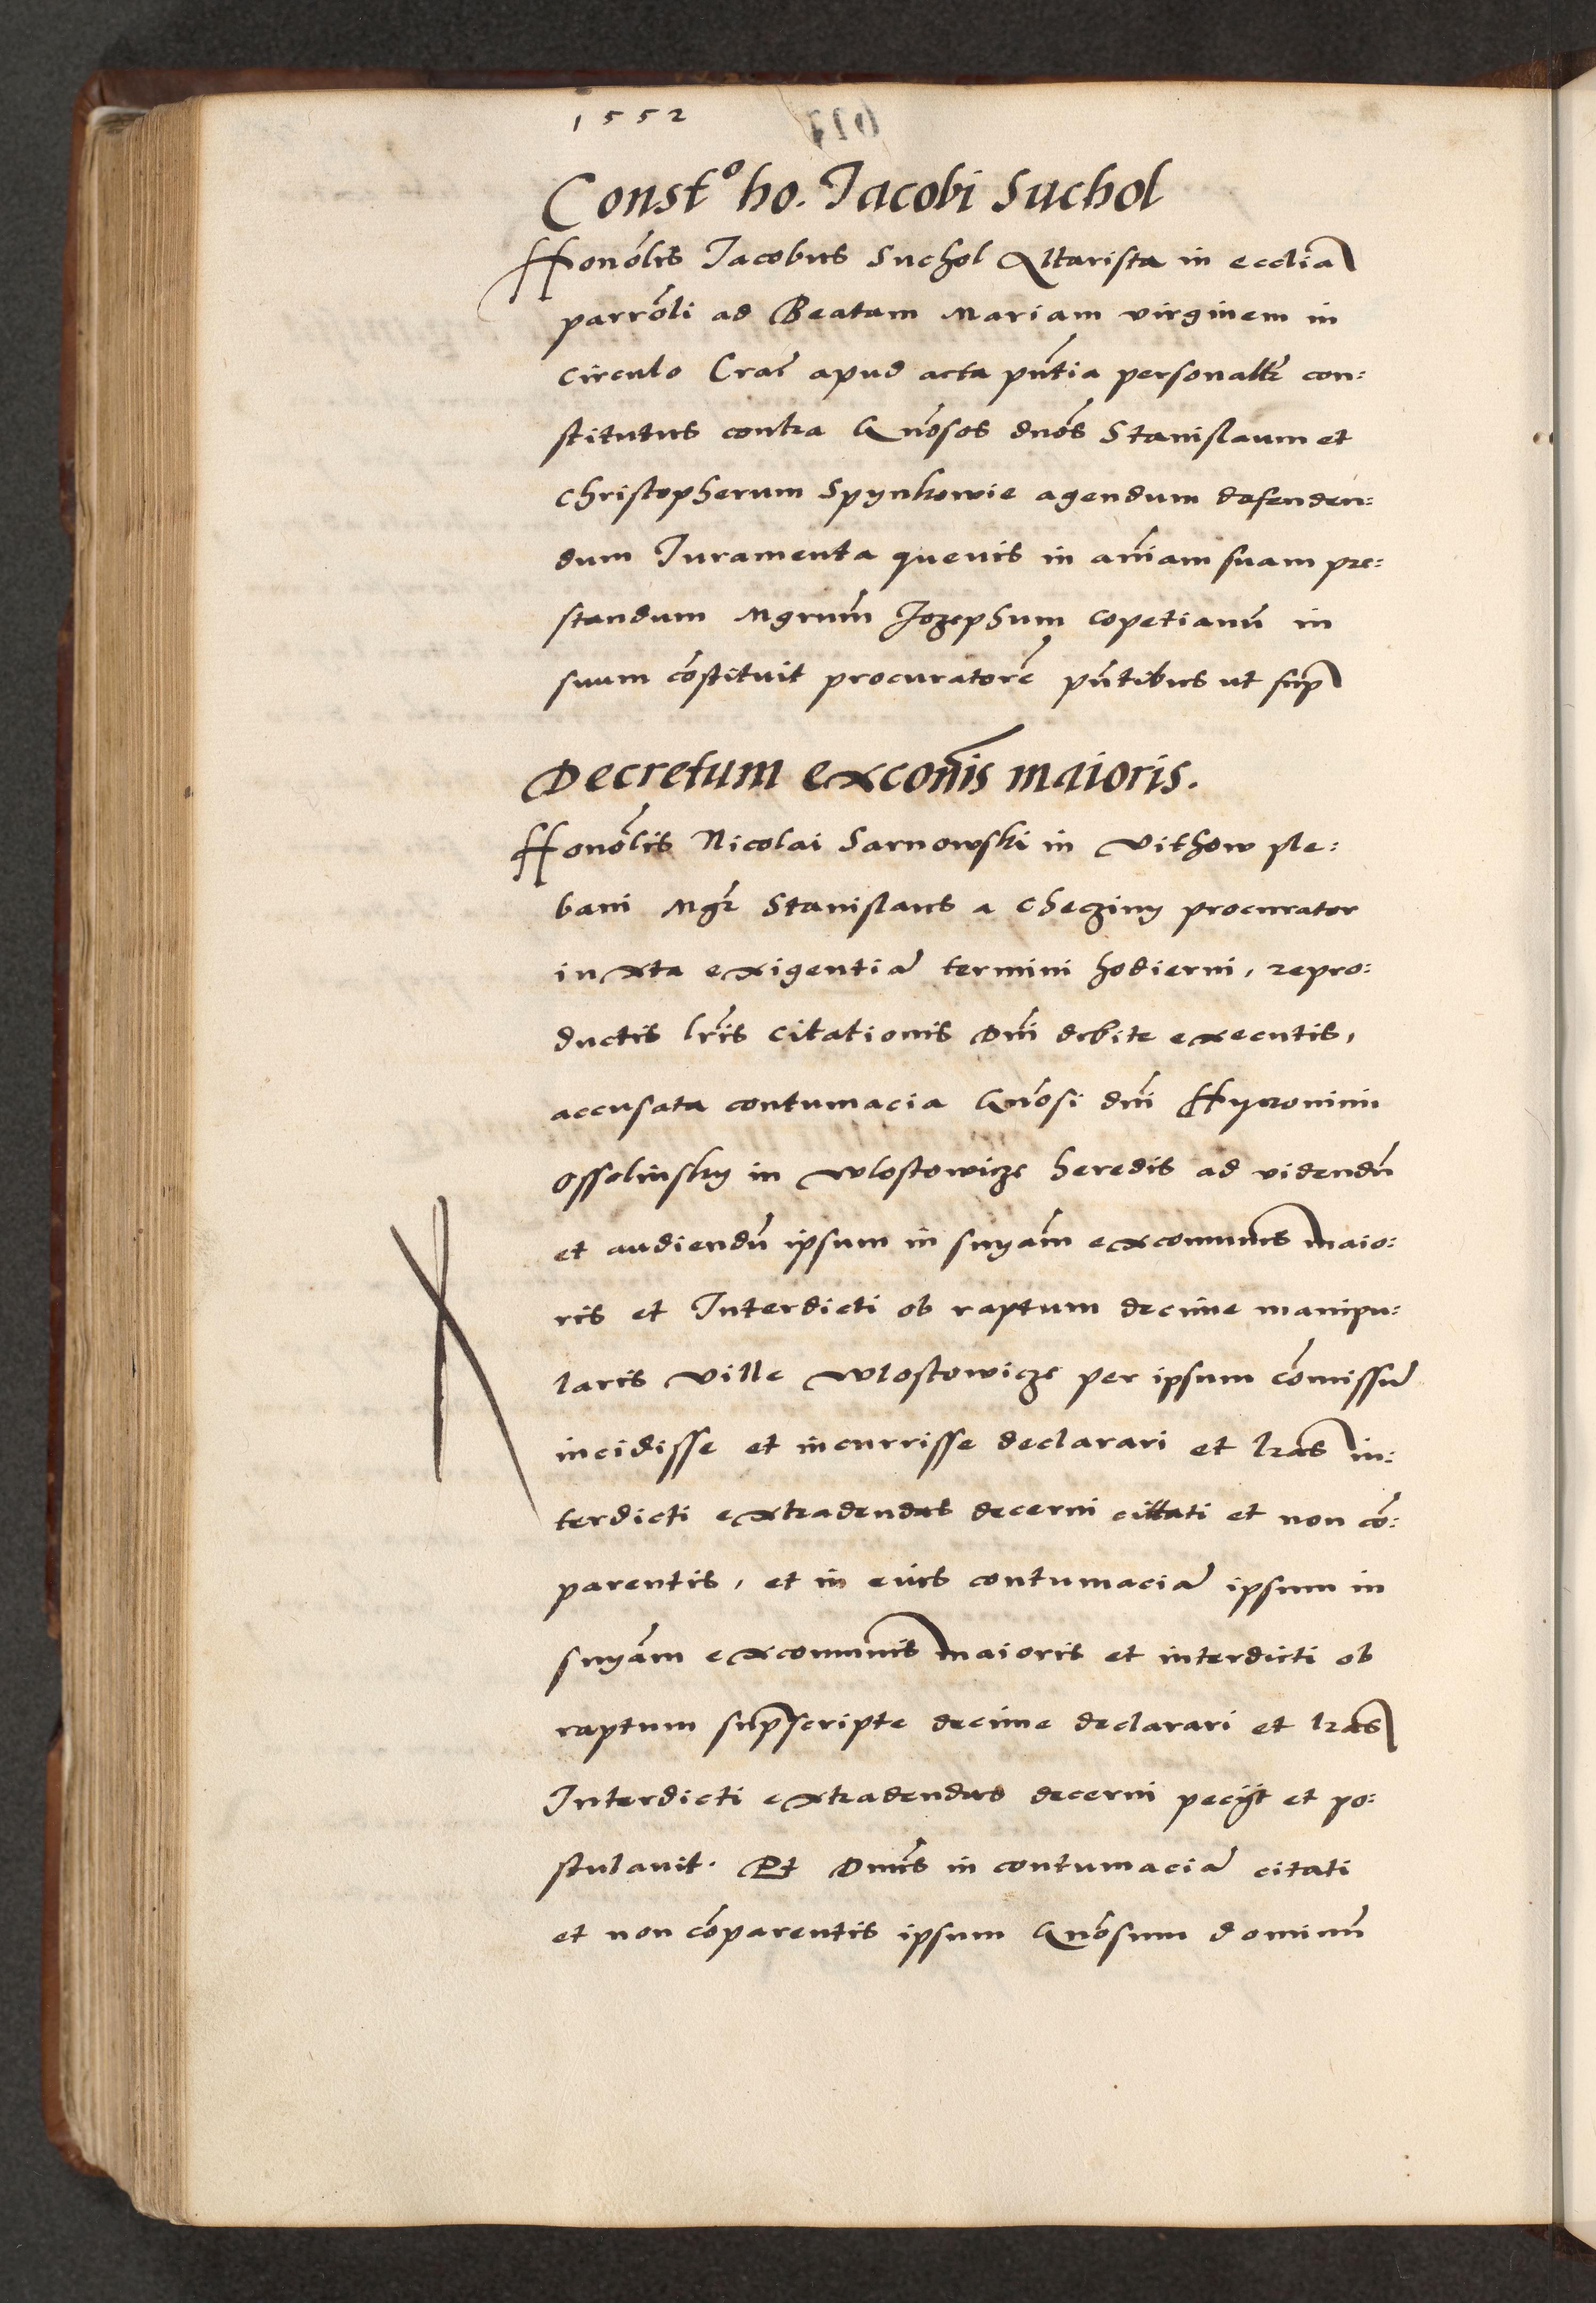 1552
Constᵒ ho. Jacobi Suchol
Honōlis Jacobus Suchol Altarista in ecclīa
parrōli ad Beatam Mariam virginem in
circulo Craī apud acta pn̄tia personalr̄ con:
stitutus contra Gn̄osos dnōs Stanislaum et
Christopherum Spynkowie agendum defenden:
dum Juramenta quevis in an̄iam suam pre:
standum Mgrum̄ Jozephum Copetianū in
suum cōstituit procuratorē pn̄tibus ut sup̄
Decretum excon̄is maioris.
Honōlis Nicolai Sarnowski in Vithow ple:
bani Mgr̄ Stanislaus a Checziny procurator
iuxta exigentiā termini hodierni, repro:
ductis lr̄is citationis Dn̄i debite executis,
accusata contumacia Gn̄osi dn̄i Hyronimi
Ossolinsky in Wlostowicze heredis ad videndū
et audiendū ipsum in snyām excomun̄is maio:
ris et Interdicti ob raptum decime manipu:
laris ville Wlostowicze per ipsum cōmissū
incidisse et incurrisse declarari et lrās in:
terdicti extradendas decerni cittati et non cō:
parentis, et in eius contumaciā ipsum in
snyām excomun̄is maioris et interdicti ob
raptum sup̄scripte decime declarari et lrās
Interdicti extradendas decerni pecijt et po:
stulavit. Et Dnūs in contumaciā citati
et non cōparentis ipsum Gn̄osum dominū